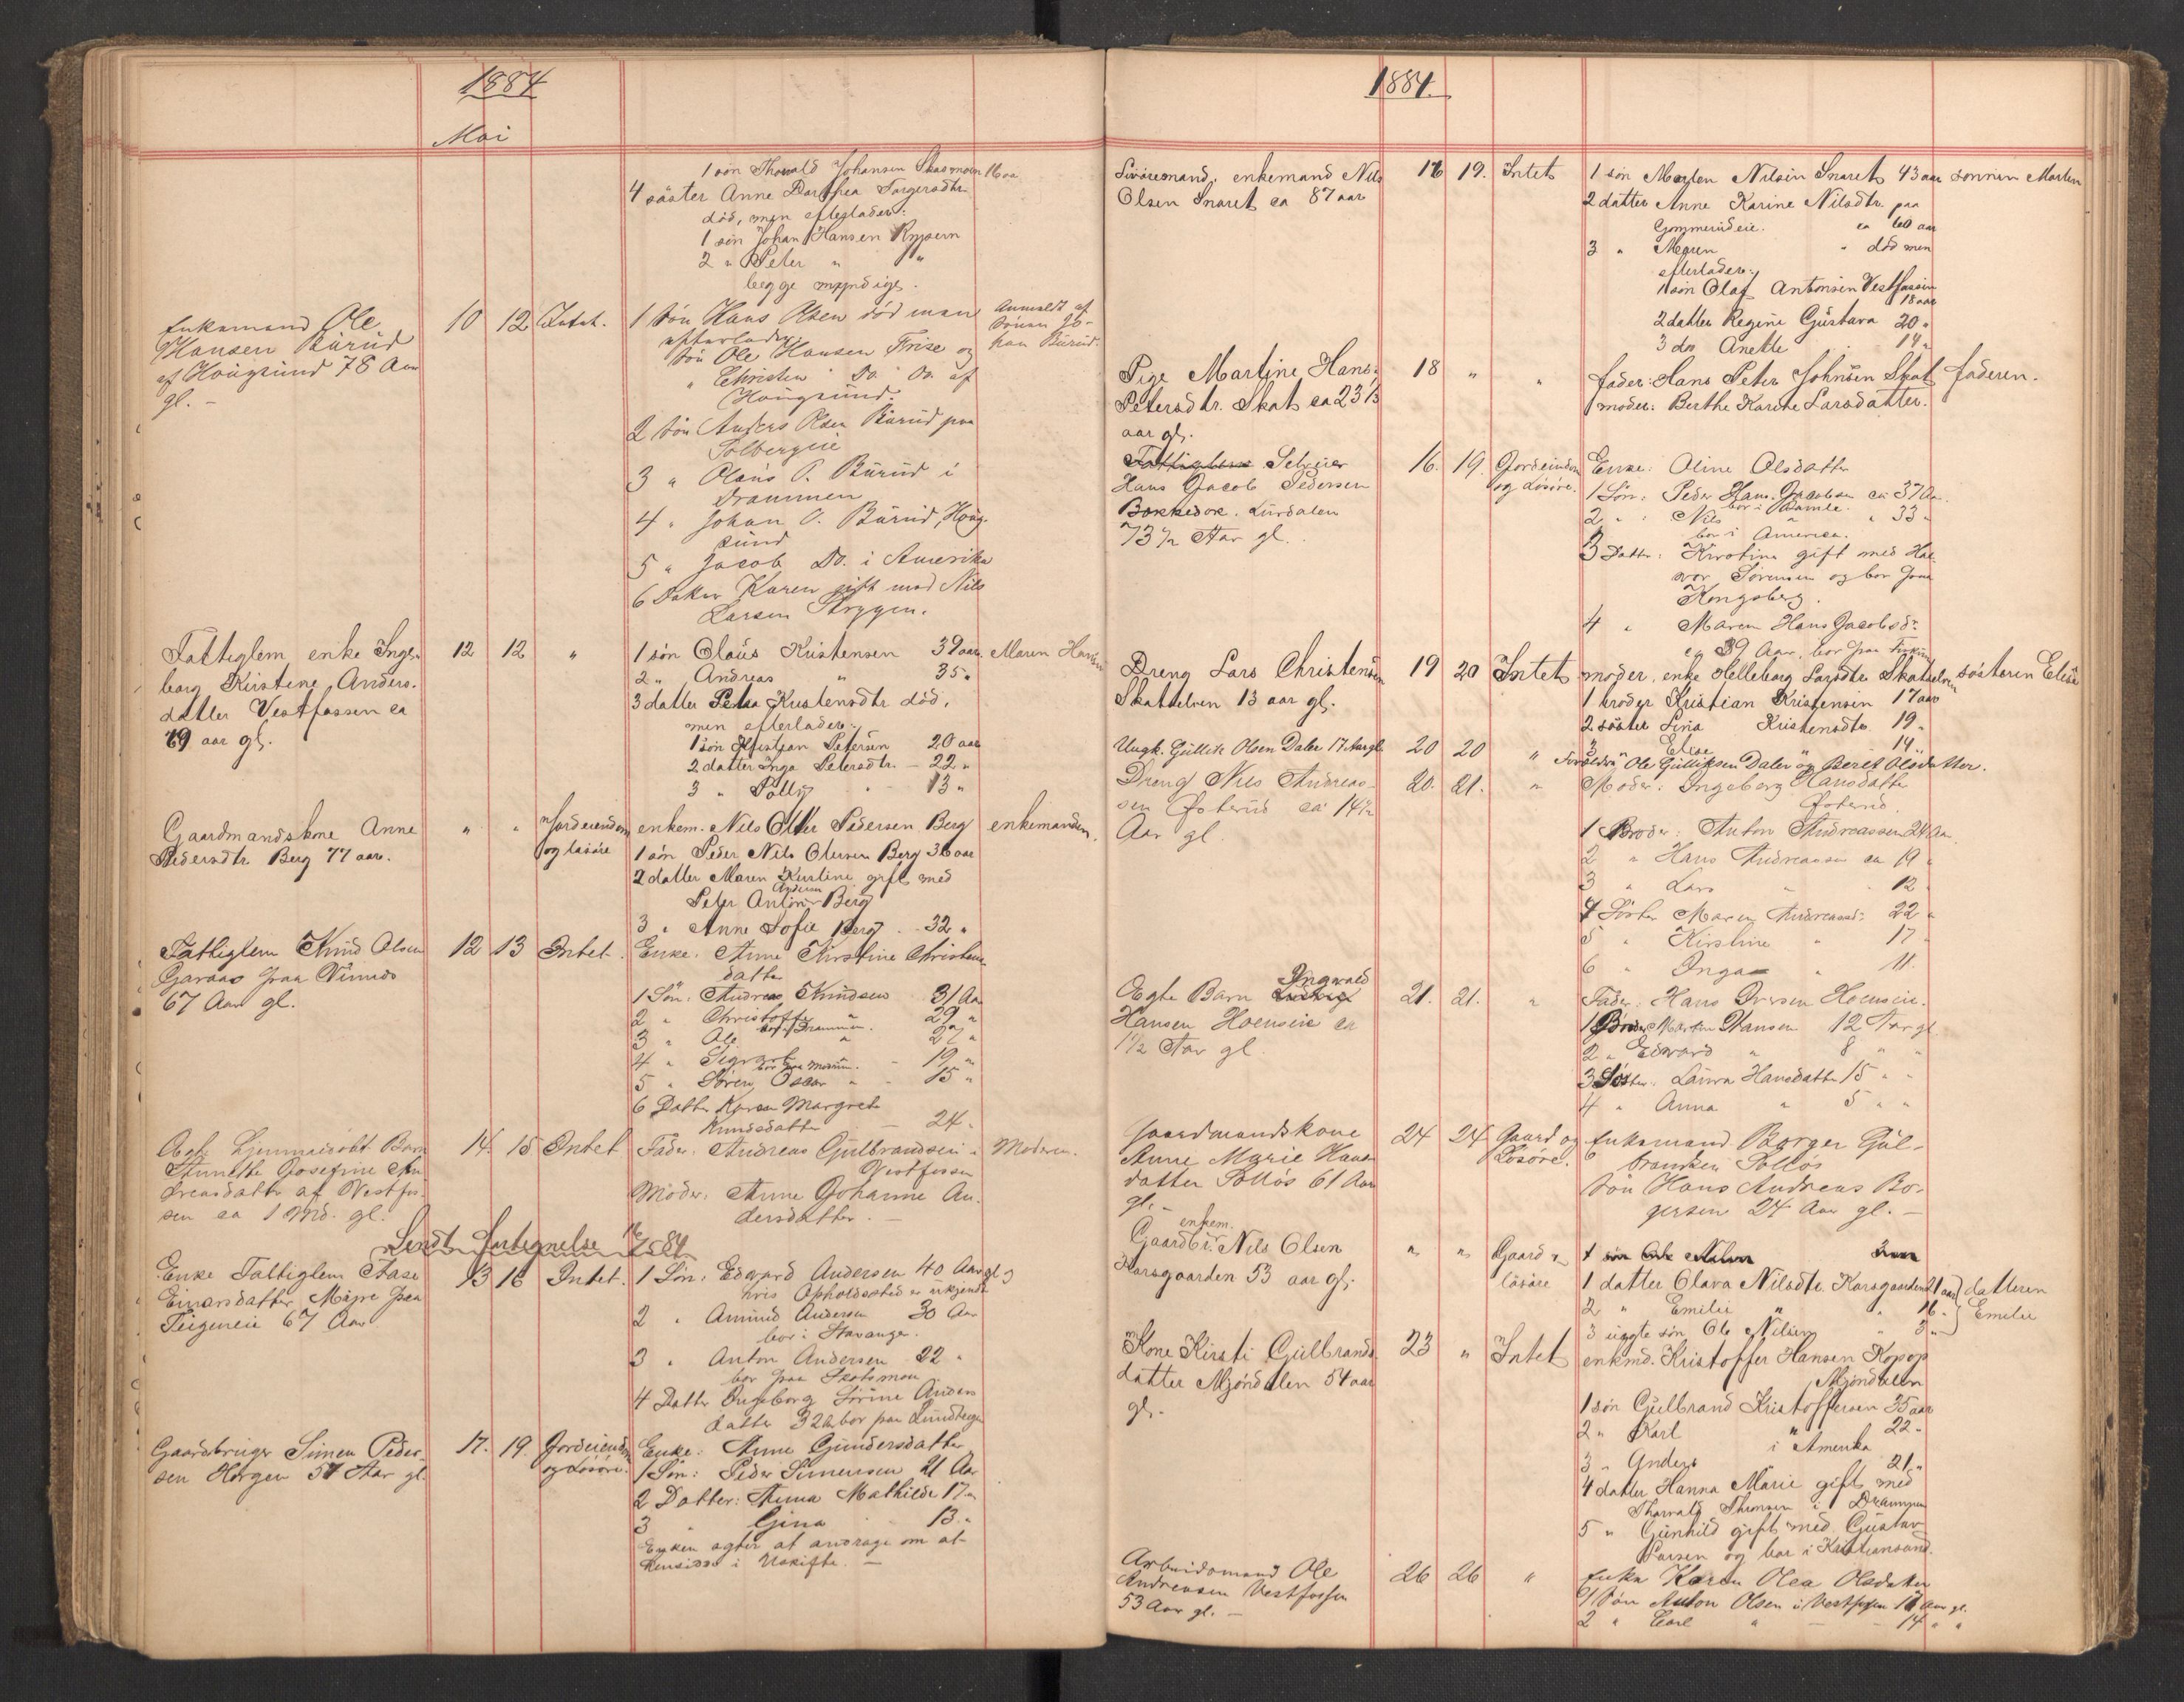 1884
Mai
1 søn Thorvald Johansen Skarsmoen 16 aar
4 søster Anne Darthea Torgersdtr
død, men efterlader:
1 søn Johan Hansen
2 " Peter " "
begge myndige.
Enkemand Ole 10 12 Intet. 1 Søn Hans Olsen død men Anmeldt af
Hansen Burud efterlader Sønen Jo-
af Hougsund 78 Aar Søn Ole Hansen Frise og han Burud.
gl. - " Christen " Do. Do. af
Hougsund.
2 Søn Anders Olsen Burud paa
Solbergeie
3 " Olaus O. Burud i
Drammen
4 " Johan O. Burud, Houg-
sund
5 " Jacob Do. i Amerika
6 Datter Karen gift med Nils
Larsen Stryggen.
Fattiglem enke Inge- 12 12 " 1 søn Olaus Kristensen 39 aar. Maren Hansen
borg Kirstine Anders- 2 " Andreas " 35 "
datter Vestfossen ca 3 datter Petra Kristensdtr død,
79 aar gl. men efterlader:
1 søn Kristian Petersen 20 aar
2 datter Inga Petersdtr. - 22 "
3 " Polly " 13 "
Gaardmandskone Anne " " Jordeiendom enkem. Nils Olter Pedersen Berg enkemanden.
Pedersdtr. Berg 77 aar. og løsøre 1 søn Peder Nils Olersen Berg 36 aar
2 datter Maren Kirstine gift med
Peter Anton Andersen Berg
3 " Anne Sofie Berg - 32 "
Fattiglem Knud Olsen 12 13 Intet. Enke. Anne Kirstine Christens-
Garaas paa datter
67 Aar gl. 1 Søn: Andreas Knudsen 31 Aar
2 " Christoffer " 29 "
bor i Drammen.
3 " Ole " 27 "
4 " Sigvart - 19 "
bor paa Modum.
5 " Søren Oskar " - 15 "
6 Datter Karen Margrete
Knudsdatter - 24 "
Ægte hjemmedøbt Barn 14. 15 Intet Fader: Andreas Gulbrandsen i Moderen.
Annethe Josefine An- Vestfossen
dreasdatter af Vestfos- Moder: Anne Johanne An-
sen ca 1 Md. gl. dersdatter. -
Sendt Fortegnelse 16/5 84.
Enke Fattiglem Aase 13 16 Intet. 1 Søn: Edvard Andersen 40 Aar gl
Einarsdatter Møire paa hvis Opholdssted er ukjendt
Teigeneie 67 Aar 2 " Amund Andersen 30 Aar
bor i Stavanger.
3 " Anton Andersen 22 "
bor paa Skotsmoen
4 Datter Ingeborg Sørine Anders
datter 32 Aar bor paa
Gaardbruger Simen Peder- 17. 19. Jordeiendom Enke: Anne Gundersdatter
sen Horgen 57 Aar gl. og Løsøre. 1 Søn: Peder Simensen 21 Aar
2 Datter: Anna Mathilde 17 "
3 " Gina 13 "
Enken agter at andrage om at
hensidde i Uskifte. -
1884.
enkemand Nils 16 19. Intet 1 søn Morten Nilsen Snaret 43 aar sønnen Morten
Olsen Snaret ca 87 aar 2 datter Anne Karine Nilsdtr. paa
Gommerudeie. ca 60 aar
3 " Maren " død men
efterlader:
1 søn Olaf Antonsen Vestfossen
18 aar
2 datter Regine Gustava 20 "
3 do Anette 14 "
Pige Martine Hans- 18 " " fader: Hans Peter Johnsen Skat faderen.
Petersdtr. Skat ca 23 1/3 moder: Berthe Karine Larsdatter.
aar gl.
Selveier 16. 19. Jordeiendom Enke: Oline Olsdatter
Hans Jacob Pedersen og Løsøre. 1 Søn: Peder Hans Jacobsen ca 37 Aar.
Bakkedok. Lurdalen bor i Bamle.
73 1/2 Aar gl. 2 " Nils " " 33 "
bor i America.
3 Datter: Kirstine gift med Hal-
vor Sørensen og bor paa
Kongsberg.
4 " Maren Hans Jacobsd:
ca 39 Aar, bor paa
Dreng Lars Christensen 19 20 Intet moder, enke Helleborg Larsdtr Skatselven søsteren Elise
Skatselven 13 aar gl. 1 broder Kristian Kristensen 17 aar
2 søster Lina Kristensdtr 19 "
3 " Elise 14 "
Ungk. Gullik Olsen Daler 17 Aar gl. 20 20 " Forældre: Ole Gulliksen Daler og Beret Olsdatter.
Dreng Nils Andreas- 20. 21. " Moder: Ingeborg Hansdatter
sen Østerud ca: 14 1/2 Østerud.
Aar gl. 1 Broder: Anton Andreassen 24 Aar
2 " Hans Andreassen ca 19 "
3 " Lars " 12
4 Søster Maren Andreasd: 22 "
5 " Kirstine " 17
6 " Inga " 11.
Ægte Barn Ingwald 21. 21. " Fader: Hans Iversen Hoenseie.
Hansen Hoenseie ca 1 Broder Martin Hansen 12 Aar gl.
1 1/2 Aar gl. 2 " Edvard " 8 " "
3 Søster: Laura Hansdatter 15 " "
4 " Anna " 5 " "
Gaardmandskone 24 24 Gaard og Enkemand Borger Gul-
Anne Marie Hans- Løsøre. brandsen Solløs
datter Solløs 61 Aar Søn Hans Andreas Bor-
gl. - gersen 24 Aar gl. -
enkem.
Gaardbr. Nils Olsen " " Gaard "
Korsgaarden 53 aar gl. løsøre 1 datter Olava Nilsdtr. Korsgaarden 21 aar datteren
2 " Emilie " " 16 " Emilie
3 uægte søn Ole Nilsen " 3 "
Kone Kirsti Gulbrands- 23 " Intet enkmd. Kristoffer Hansen Kopop
datter Mjøndalen 54 aar Mjøndalen
gl. 1 søn Gulbrand Kristoffersen 35 aar
2 " Karl " 22 "
i Amerika
3 " Anders 21 "
4 datter Hanna Marie gift med
Thorvald Thomsen i Drammen
5 " Gunhild gift med Gustav
Larsen og bor i Kristiansand.
Arbeidsmand Ole 26 26 " Enke Karen Olea Olsdatter
Andreassen Vestfossen 1 Søn Anton Olsen i Vestfossen 17 Aar gl.
53 Aar gl. - 2 " Carl " - - 14 " "